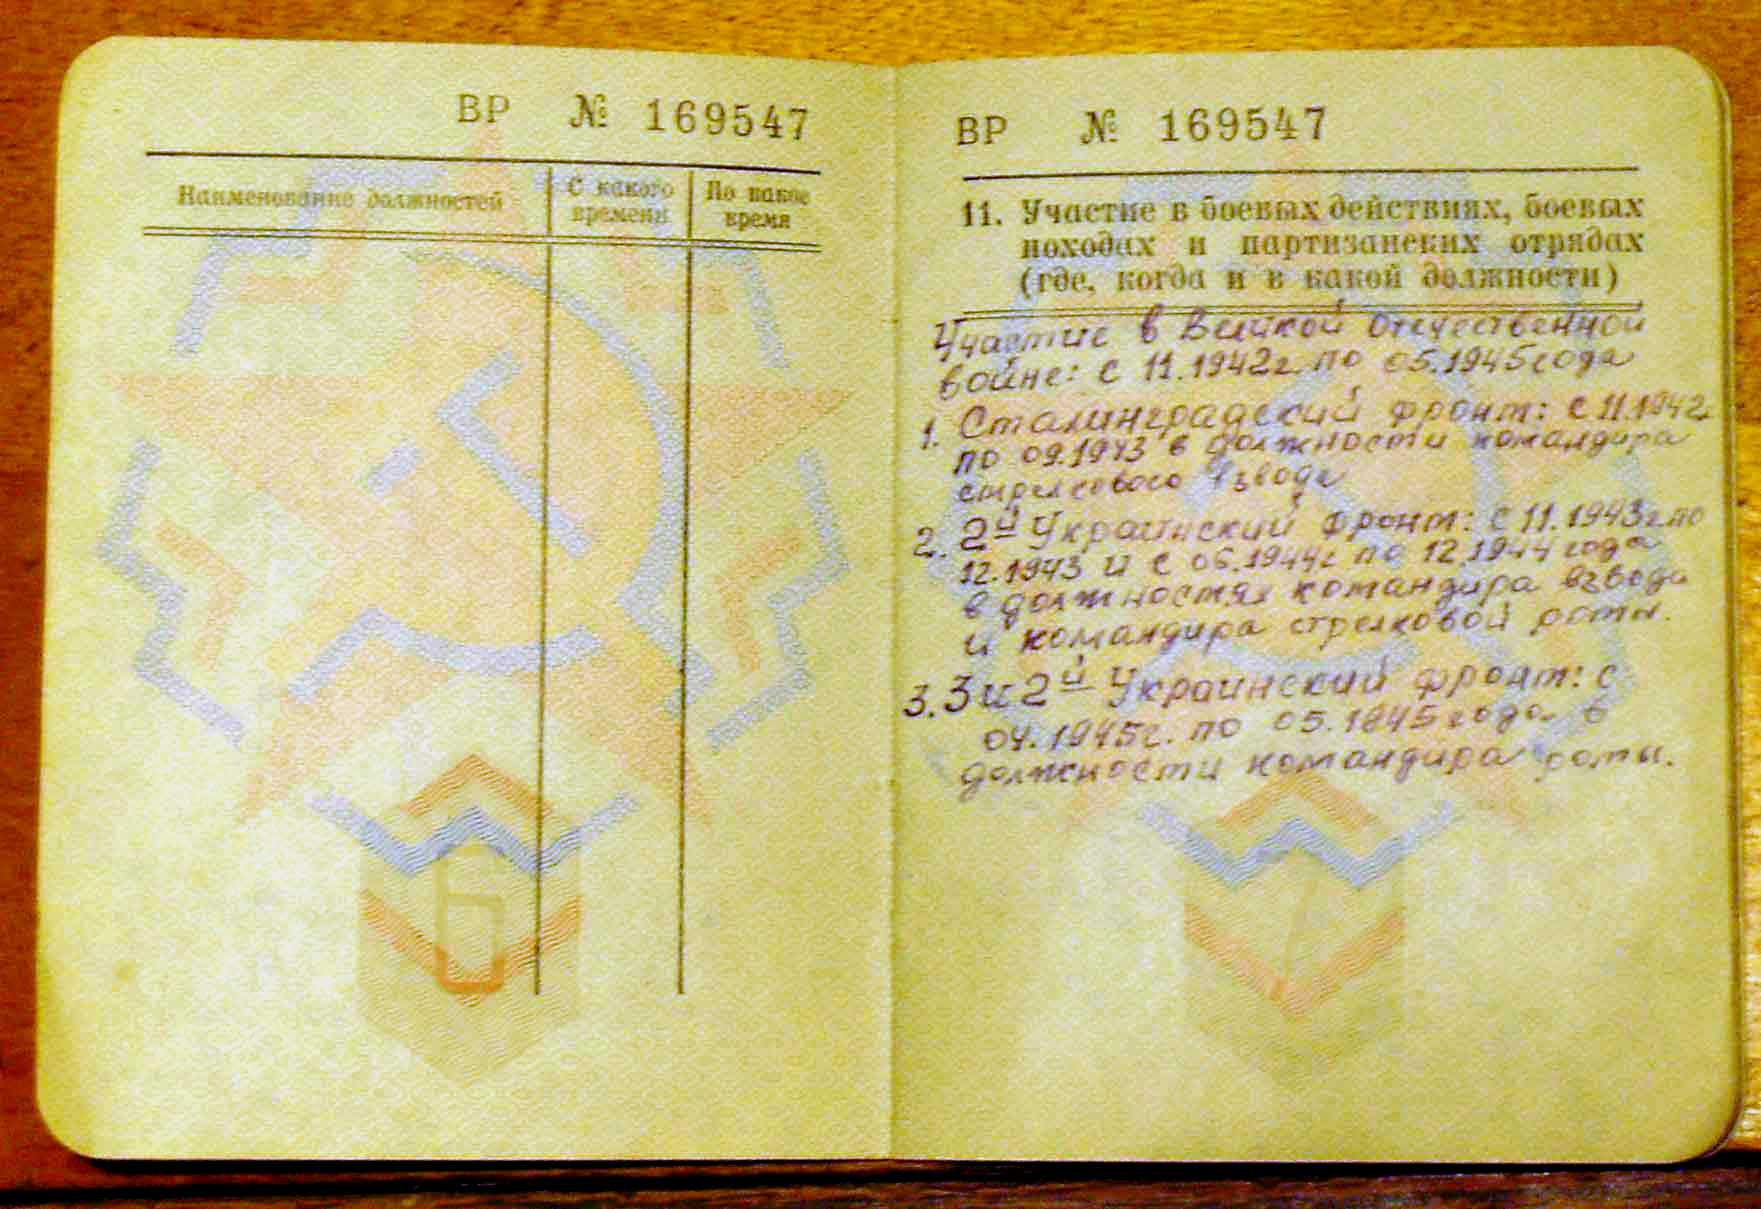 ВР № 169547
Наименование должностей
С какого времени
По какое время
6
ВР № 169547
11. Участие в боевых действиях, боевых
походах и партизанских отрядах
(где, когда и в какой должности)
Участие в Великой Отечественной
войне: с 11.1942г. по 05.1945года
1. Сталинградский фронт: с 11.1942г.
по 09.1943 в должности командира
стрелкового взвода
2. 2й Украинский фронт: с 11.1943г по
12.1943 и с 06.1944г по 12.1944 года
в должностях командира взвода
и командира стрелковой роты.
3. 3 и 2й Украинский фронт: с
04.1945г. по 05.1945 года в
должности командира роты.
7